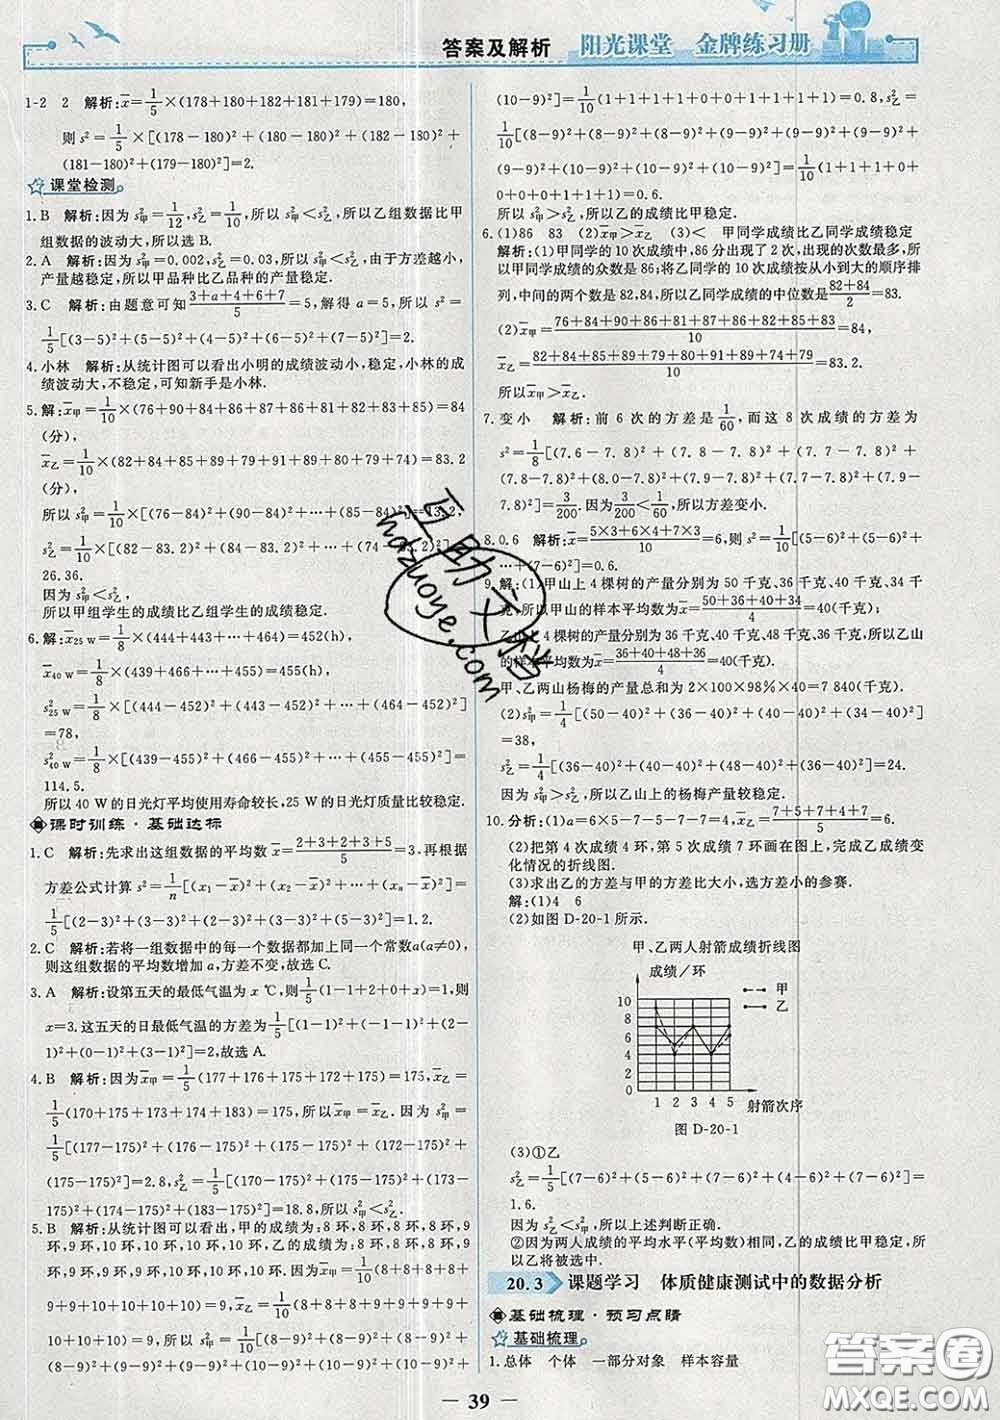 答案及解析 阳光课堂 金牌练习册
1-2 2 解析:x̄=1/5×(178+180+182+181+179)=180,
则 s²=1/5×[(178-180)²+(180-180)²+(182-180)²+
(181-180)²+(179-180)²]=2.
课堂检测
1.B 解析:因为 s²甲=1/12,s²乙=1/5,所以 s²甲<s²乙,所以乙组数据比甲
组数据的波动大,所以选 B.
2.A 解析:因为 s²甲=0.002,s²乙=0.03,所以 s²甲<s²乙,由于方差越小,
产量越稳定,所以甲品种比乙品种的产量稳定.
3.C 解析:由题意可知(3+a+4+6+7)/5=5,解得 a=5,所以 s²=
1/5[(3-5)²+(5-5)²+(4-5)²+(6-5)²+(7-5)²]=2.
4.小林 解析:从统计图可以看出小明的成绩波动小,稳定,小林的成
绩波动大,不稳定,可知新手是小林.
5.解:x̄甲=1/10×(76+90+84+86+87+86+81+82+83+85)=84
(分),
x̄乙=1/10×(82+84+85+89+79+91+89+80+79+74)=83.2
(分),
所以 s²甲=1/10×[(76-84)²+(90-84)²+…+(85-84)²]=13.2,
s²乙=1/10×[(82-83.2)²+(84-83.2)²+…+(74-83.2)²]=
26.36.
因为 s²甲<s²乙,
所以甲组学生的成绩比乙组学生的成绩稳定.
6.解:x̄25 W=1/8×(444+443+…+464)=452(h),
x̄40 W=1/8×(439+466+…+455)=455(h),
s²25 W=1/8×[(444-452)²+(443-452)²+…+(464-452)²]
=78,
s²40 W=1/8×[(439-455)²+(466-455)²+…+(455-455)²]=
114.5.
所以 40 W 的日光灯平均使用寿命较长,25 W 的日光灯质量比较稳定.
课时训练·基础达标
1.C 解析:先求出这组数据的平均数 x̄=(2+3+2+3+5)/5=3,再根据
方差公式计算 s²=1/n[(x₁-x̄)²+(x₂-x̄)²+…+(xₙ-x̄)²]=
1/5[(2-3)²+(3-3)²+(2-3)²+(3-3)²+(5-3)²]=1.2.
2.C 解析:若将一组数据中的每一个数据都加上同一个常数a(a≠0),
则这组数据的平均数增加 a,方差不变,故选 C.
3.A 解析:设第五天的最低气温为 x ℃,则1/5(1-1+2+0+x)=1,则
x=3.这五天的日最低气温的方差为1/5[(1-1)²+(-1-1)²+(2-
1)²+(0-1)²+(3-1)²]=2,故选 A.
4.B 解析:因为 x̄甲=1/5(177+176+175+172+175)=175,x̄乙=
1/5(170+175+173+174+183)=175,所以 x̄甲=x̄乙.因为 s²甲=
1/5[(177-175)²+(176-175)²+(175-175)²+(172-175)²+
(175-175)²]=2.8,s²乙=1/5[(170-175)²+(175-175)²+
(173-175)²+(174-175)²+(183-175)²]=18.8,所以 s²甲<s²乙.
5.B 解析:从统计图可以看出,甲的成绩为:8 环,8 环,8 环,8 环,9
环,9 环,10 环,10 环,10 环,10 环,乙的成绩为:8 环,8 环,8 环,9
环,9 环,9 环,9 环,10 环,10 环,10 环.因为1/10(8+8+8+8+9+
9+10+10+10+10)=9,1/10(8+8+8+9+9+9+9+10+
10+10)=9,所以 s²甲=1/10[(8-9)²+(8-9)²+(8-9)²+
(8-9)²+(9-9)²+(9-9)²+(10-9)²+(10-9)²+(10-9)²+
(10-9)²]=1/10(1+1+1+1+0+0+1+1+1+1)=0.8,s²乙=
1/10[(8-9)²+(8-9)²+(8-9)²+(9-9)²+(9-9)²+(9-9)²+
(9-9)²+(10-9)²+(10-9)²+(10-9)²]=1/10(1+1+1+0+
0+0+0+1+1+1)=0.6.
所以 s²甲>s²乙,所以乙的成绩比甲稳定.
6.(1)86 83 (2)x̄甲>x̄乙 (3)< 甲同学成绩比乙同学成绩稳定
解析:(1)甲同学的 10 次成绩中,86 分出现了 2 次,出现的次数最多,所
以甲同学成绩的众数是 86;将乙同学的 10 次成绩按从小到大的顺序排
列,中间的两个数是 82,84,所以乙同学成绩的中位数是(82+84)/2=83.
(2)x̄甲=(76+84+90+86+81+87+86+82+85+83)/10=84,
x̄乙=(82+84+85+89+79+80+91+89+74+79)/10=83.2.
所以x̄甲>x̄乙.
7.变小 解析:前 6 次的方差是1/60,而这 8 次成绩的方差为
s²=1/8[(7.6-7.8)²+(7.8-7.8)²+(7.7-7.8)²+
(7.8-7.8)²+(8.0-7.8)²+(7.9-7.8)²+(7.7-7.8)²+(7.9-
7.8)²]=3/200.因为3/200<1/60,所以方差变小.
8.0.6 解析:x̄=(5×3+6×4+7×3)/10=6,则 s²=1/10[(5-6)²+(5-6)²+
…+(7-6)²]=0.6.
9.解:(1)甲山上 4 棵树的产量分别为 50 千克、36 千克、40 千克、34 千
克,所以甲山的样本平均数为 x̄=(50+36+40+34)/4=40(千克);
乙山上 4 棵树的产量分别为 36 千克、40 千克、48 千克、36 千克,所以乙山
的样本平均数为 x̄=(36+40+48+36)/4=40(千克).
甲、乙两山杨梅的产量总和为 2×100×98%×40=7 840(千克).
(2)s²甲=1/4[(50-40)²+(36-40)²+(40-40)²+(34-40)²]
=38,
s²乙=1/4[(36-40)²+(40-40)²+(48-40)²+(36-40)²]=24.
所以 s²甲>s²乙.所以乙山上的杨梅产量较稳定.
10.分析:(1)a=6×5-7-5-7-7=4,x̄乙=(7+5+7+4+7)/5=6.
(2)把第 4 次成绩 4 环,第 5 次成绩 7 环画在图上,完成乙成绩变
化情况的折线图.
(3)求出乙的方差与甲的方差比大小,选方差小的参赛.
解:(1)4 6
(2)如图 D-20-1 所示.
甲、乙两人射箭成绩折线图
成绩/环
甲
乙
10
8
6
4
2
0
1 2 3 4 5 射箭次序
图 D-20-1
(3)①乙
s²乙=1/5[(7-6)²+(5-6)²+(7-6)²+(4-6)²+(7-6)²]=
1.6.
因为 s²乙<s²甲,所以上述判断正确.
②因为两人成绩的平均水平(平均数)相同,乙的成绩比甲稳定,所
以乙将被选中.
20.3 课题学习 体质健康测试中的数据分析
基础梳理·预习点睛
基础梳理
1.总体 个体 一部分对象 样本容量
39
hdzuoye.com
答案圈
MXQE.COM